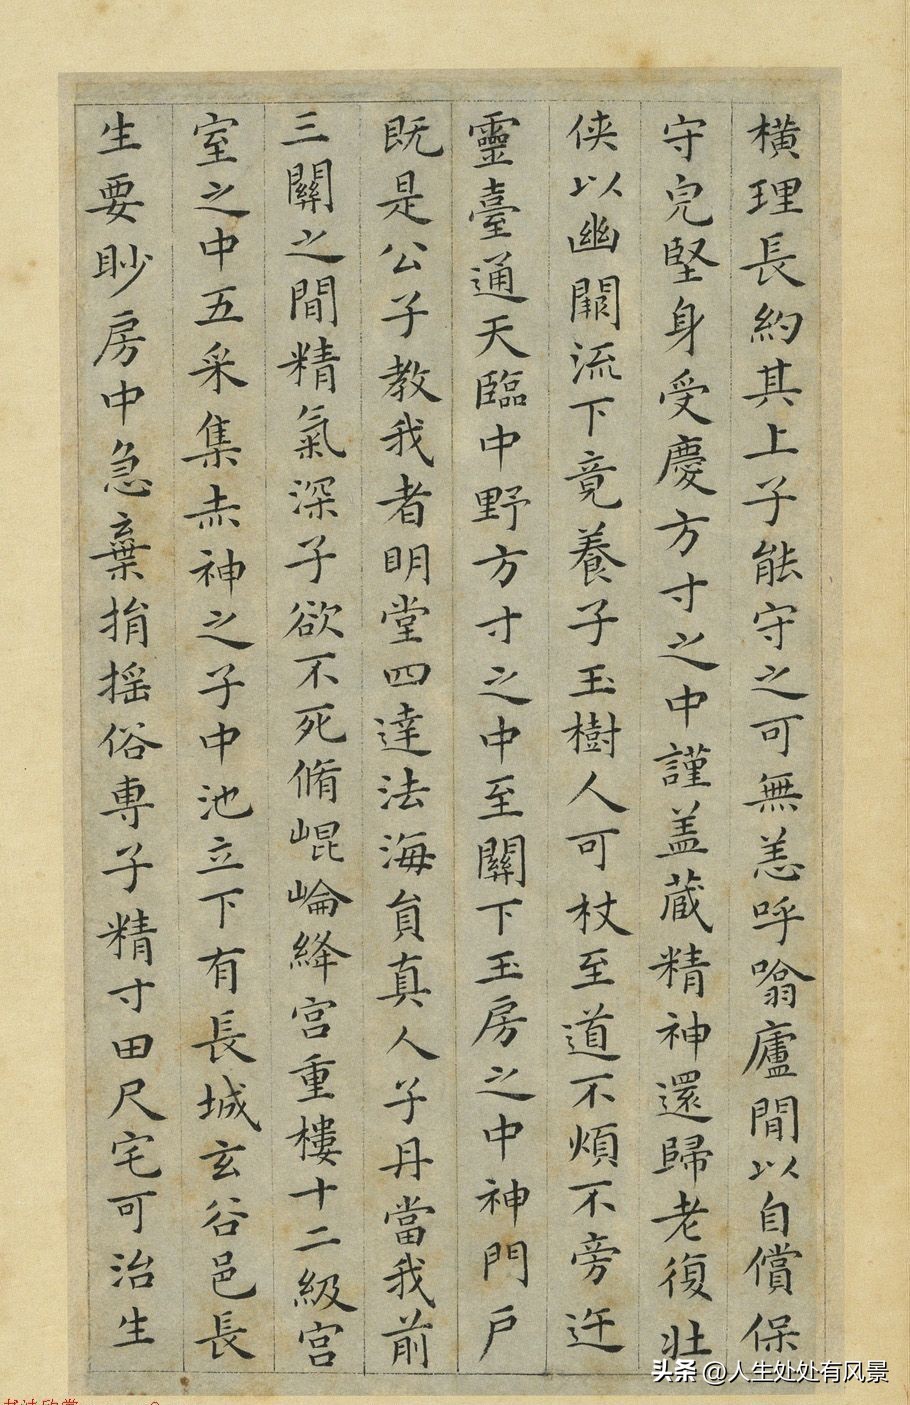 橫理長約其上子能守之可無恙呼噏廬間以自償保
守完堅身受慶方寸之中謹盖蔵精神還歸老復壯
侠以幽闕流下竟養子玉樹人可杖至道不煩不旁迕
靈臺通天臨中野方寸之中至關下玉房之中神門戶
既是公子教我者明堂四達法海員真人子丹當我前
三關之間精氣深子欲不死脩崐崘絳宫重樓十二級宫
室之中五采集赤神之子中池立下有長城玄谷邑長
生要眇房中急棄捐揺俗專子精寸田尺宅可治生
头条 @人生处处有风景